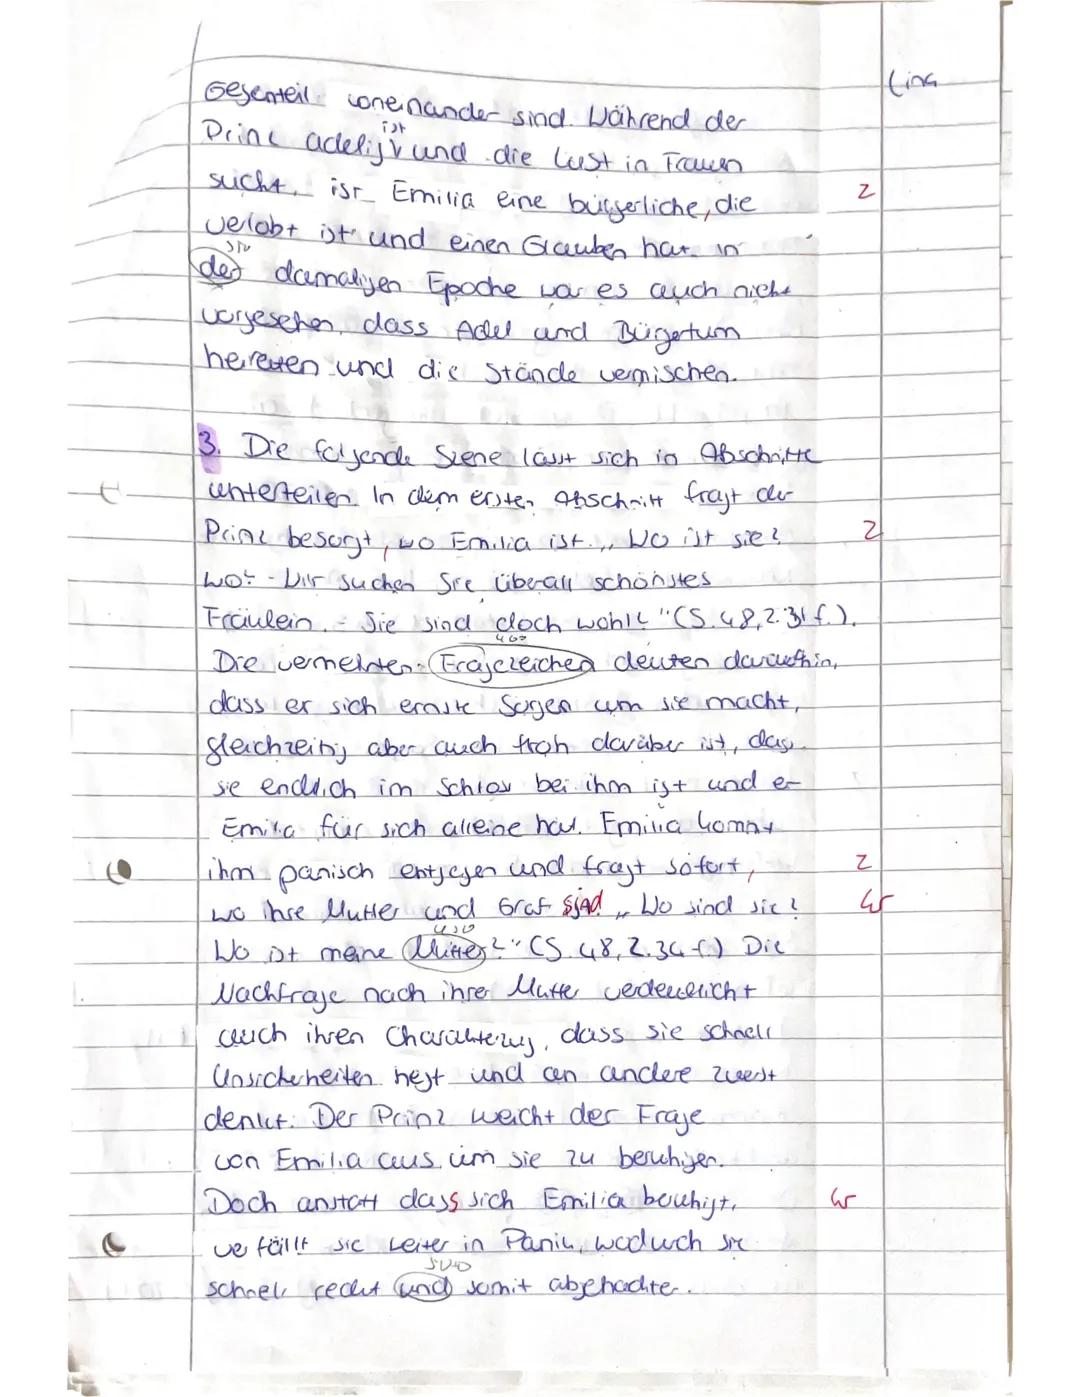 Lina
Gegenteil voneinander sind. Während der
ist
Prinz adelig v und die Lust in Frauen
sucht, ist Emilia eine bürgerliche, die Z
verlobt ist und einen Glauben hat. in
der damaligen Epoche war es auch nicht
vorgesehen, dass Adel und Bürgertum
heiraten und die Stände vermischen.
3. Die folgende Szene lässt sich in Abschnitte
unterteilen. In dem ersten Abschnitt fragt der
Prinz besorgt, wo Emilia ist. „Wo ist sie? Z
wo? - Wir suchen Sie überall schönstes
Fräulein. - Sie sind doch wohl?" (S. 48, Z. 31 f.).
460
Die vermehrten Fragezeichen deuten daraufhin,
dass er sich ernste Sorgen um sie macht,
gleichzeitig aber auch froh darüber ist, dass
sie endlich im Schloss bei ihm ist und er
Emilia für sich alleine hat. Emilia kommt
ihm panisch entgegen und fragt sofort, Z
wo ihre Mutter und Graf sind „Wo sind sie? Gr
Wo ist meine Mutter?" (S. 48, Z. 34 f.) Die
Nachfrage nach ihrer Mutter verdeutlicht
auch ihren Charakterzug, dass sie schnell
Unsicherheiten hegt und an andere zuerst
denkt. Der Prinz weicht der Frage
von Emilia aus um sie zu beruhigen.
Doch anstatt dass sich Emilia beruhigt, Gr
verfällt sie weiter in Panik, wodurch sie
schnell redet und somit abgehackter.